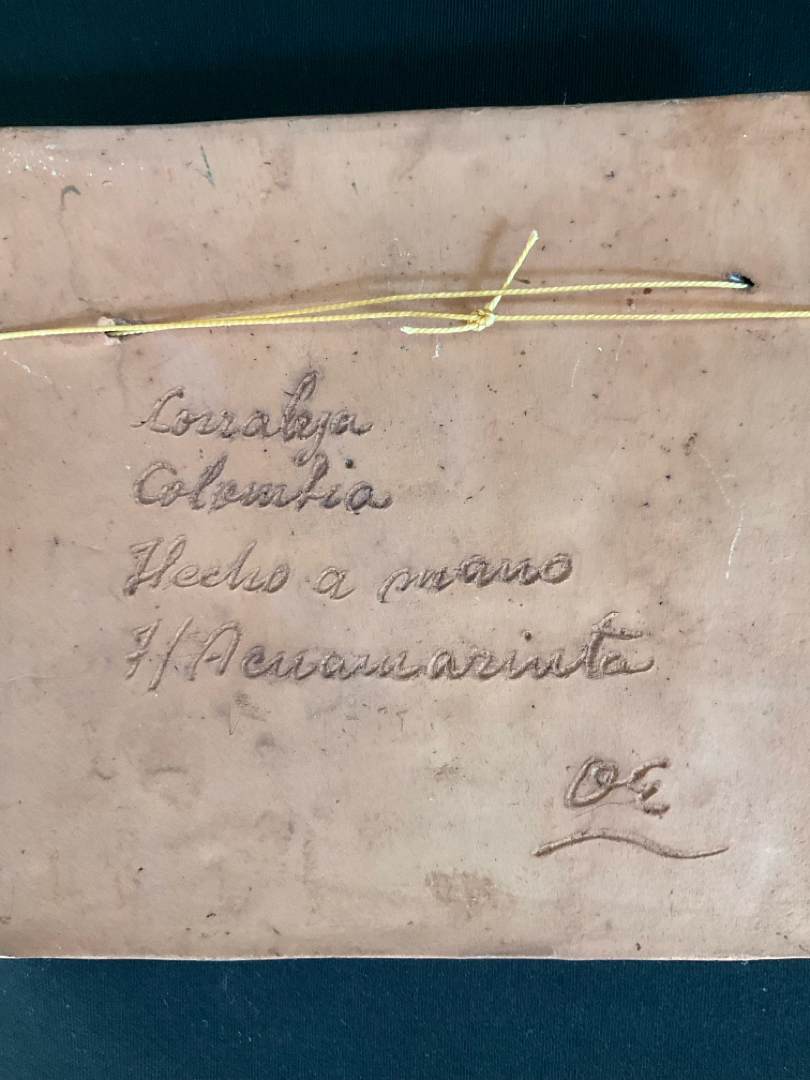 Corraleja
Colombia
Hecho a mano
T/Acuamarinta